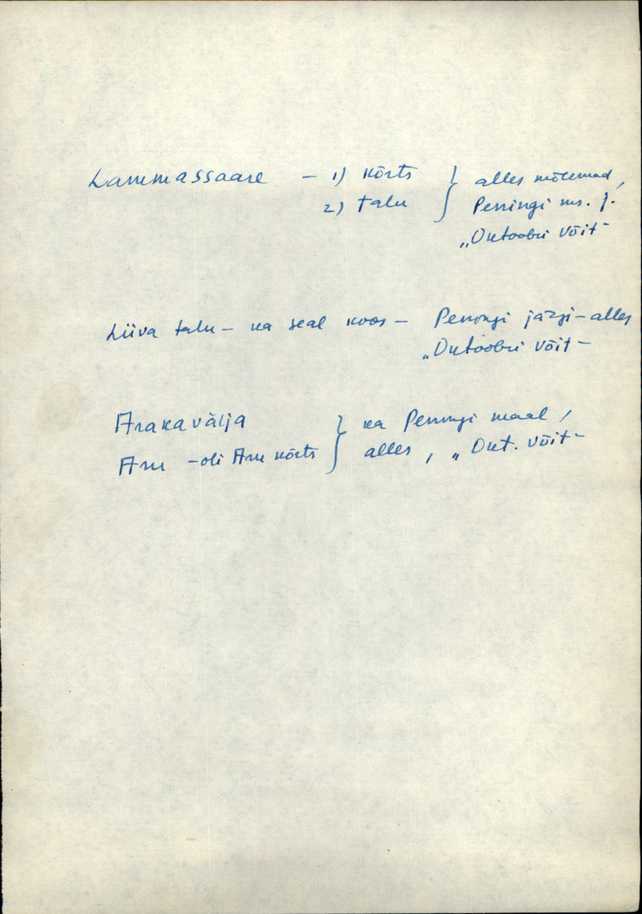 Lammassaare – 1) kõrts } alles mõlemad,
2) talu } Penningi ms. j.
„Oktoobri võit"
Liiva talu – ka seal koos – Penningi järgi – alles
„Oktoobri võit"
Arakavälja } ka Penningi maal,
Aru – oli Aru kõrts } alles, „Okt. võit"